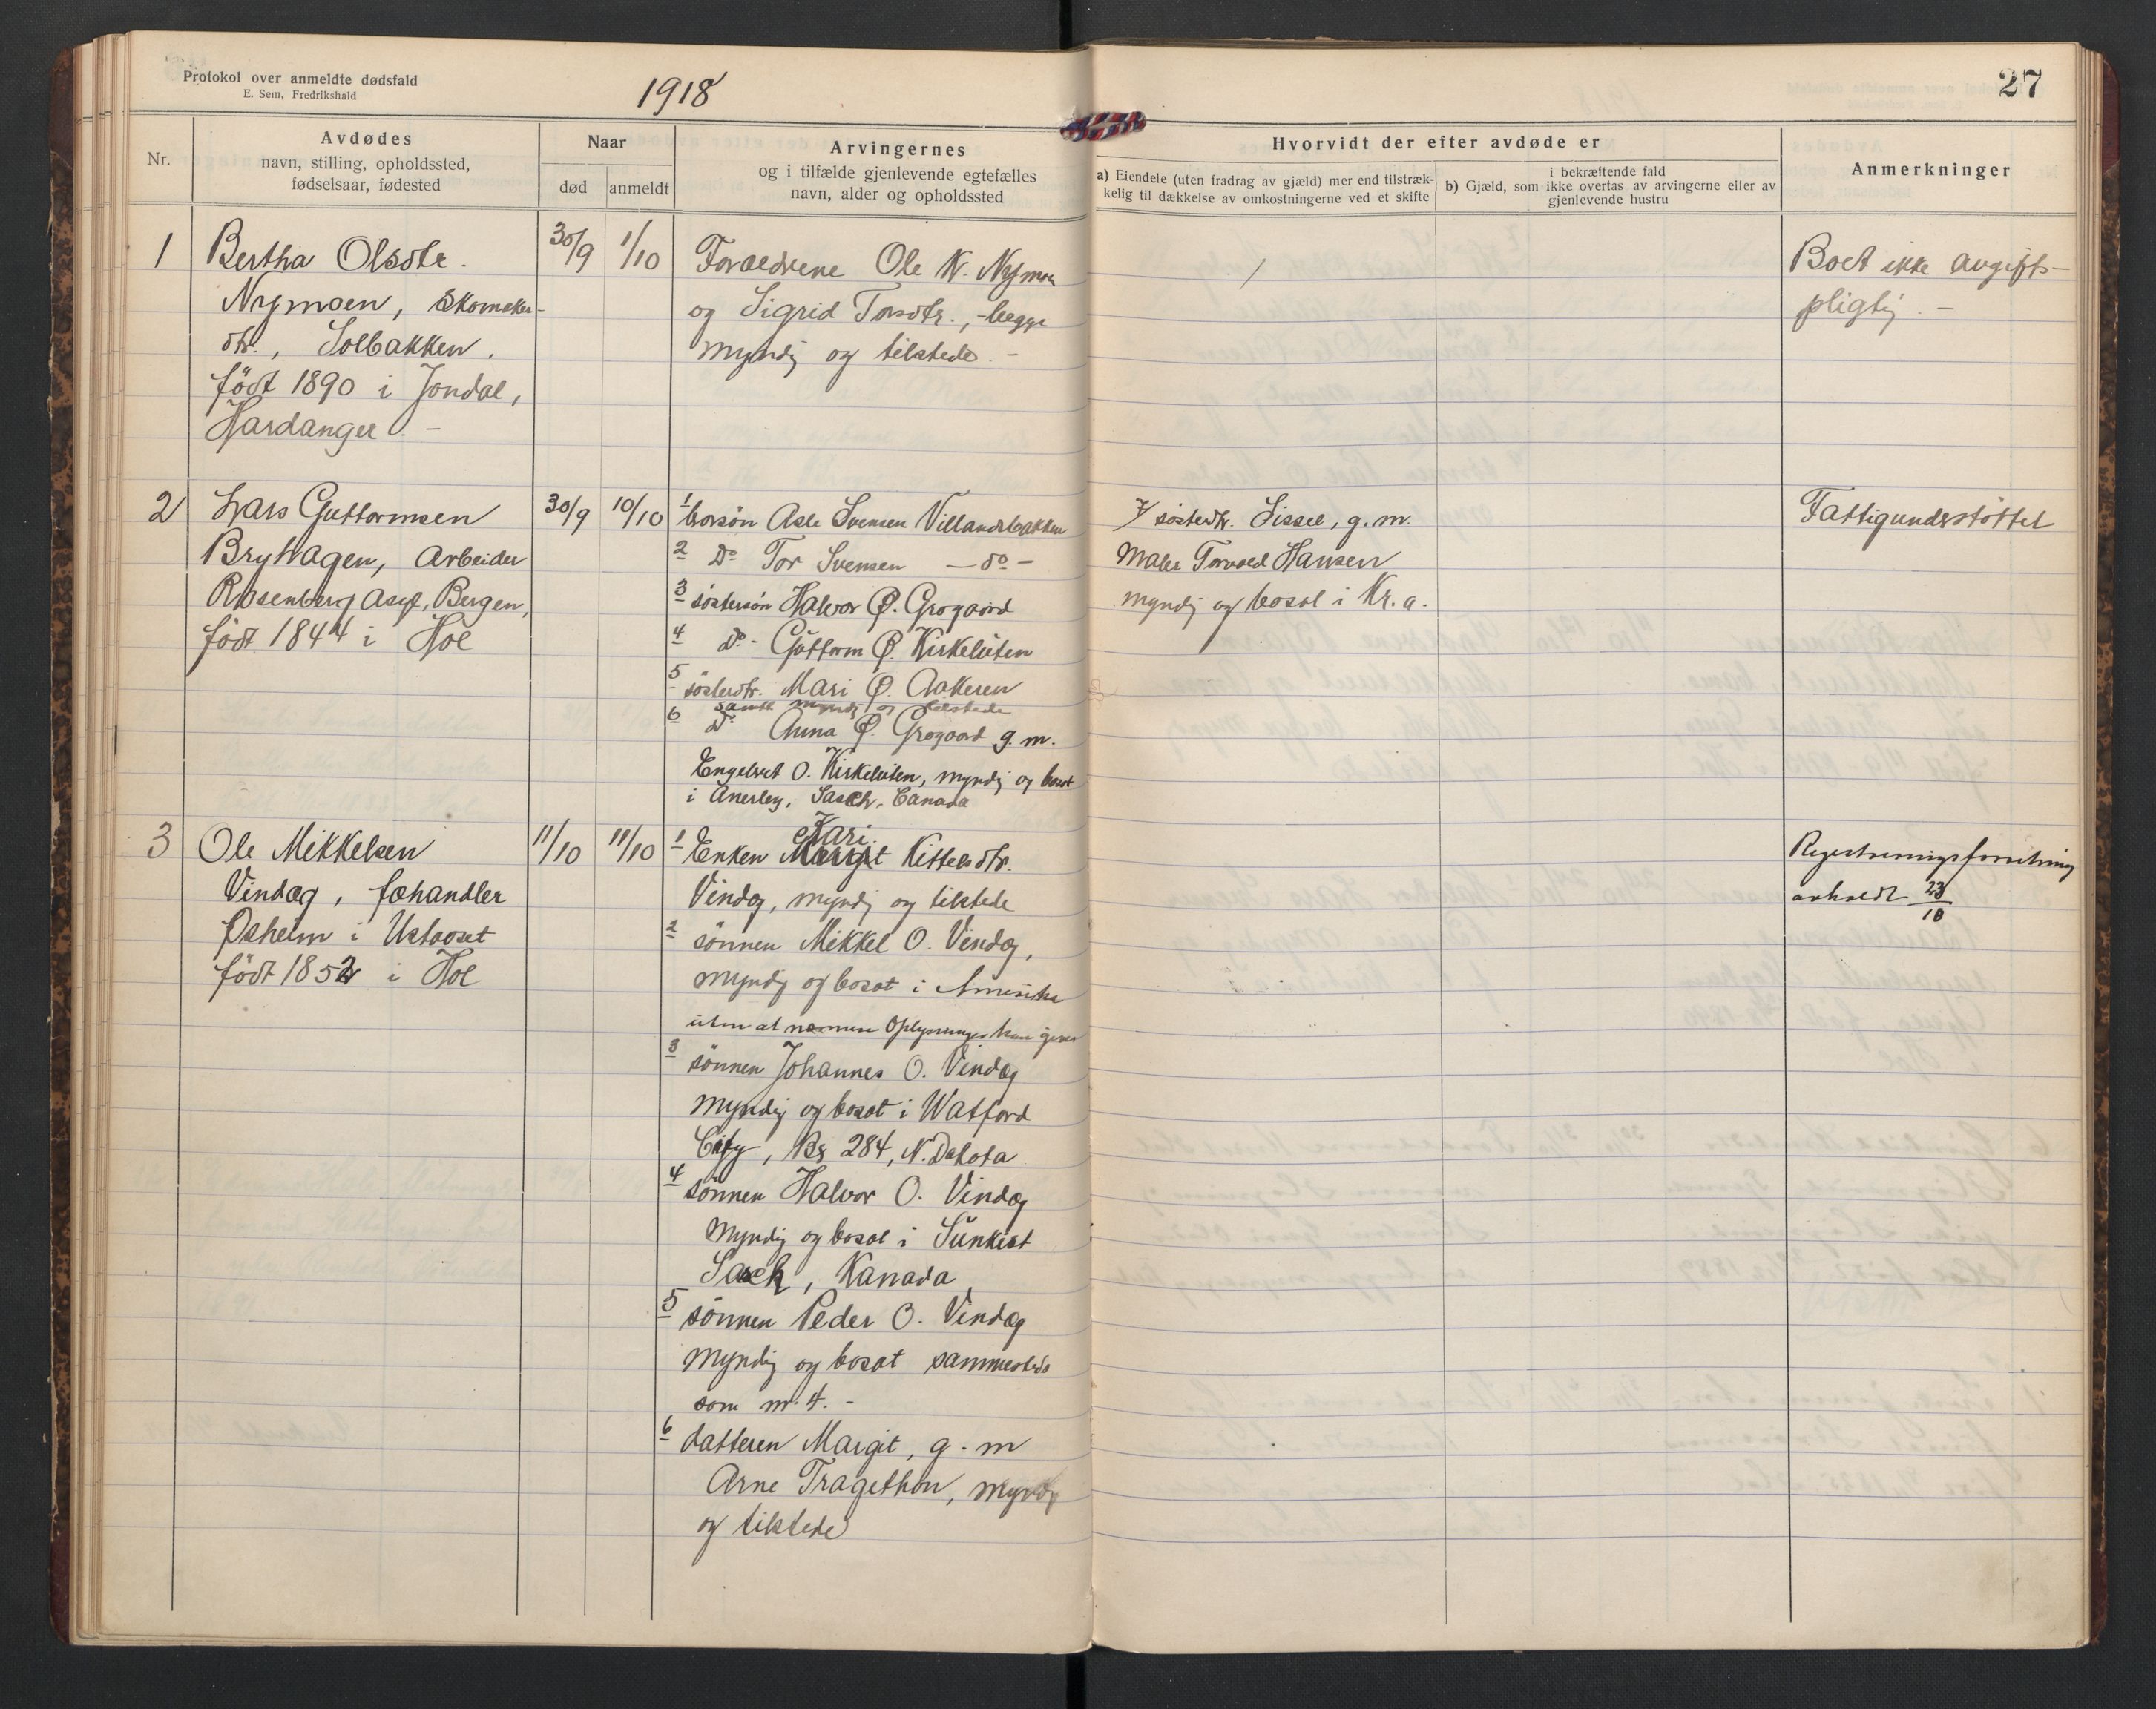 Protokol over anmeldte dødsfald
E. Sem, Fredrikshald
1918
27
Nr.
Avdødes
navn, stilling, opholdssted,
fødselsaar, fødested
Naar
død
anmeldt
Arvingernes
og i tilfælde gjenlevende egtefælles
navn, alder og opholdssted
Hvorvidt der efter avdøde er
a) Eiendele (uten fradrag av gjæld) mer end tilstræk-
kelig til dækkelse av omkostningerne ved et skifte
i bekræftende fald
b) Gjæld, som ikke overtas av arvingerne eller av
gjenlevende hustru
Anmerkninger
1
Bertha Olsdtr.
Nymoen, Skomaker-
dtr., Solbakken,
født 1890 i Jondal,
Hardanger. -
30/9
1/10
Forældrene Ole K. Nymoen
og Sigrid Torsdtr., - begge
myndig og tilstede. -
/
Boet ikke avgifts-
pligtig. -
2
Lars Guttormsen
Bryhagen, Arbeider
Rosenberg Asyl, Bergen,
født 1844 i Hol
30/9
10/10
1 brorsøn Asle Svensen Villandsbakken
2 Do Tor Svensen - do -
3 søstersøn Halvor Ø. Grogaard
4 Do - Guttorm Ø. Kirkeluten
5 søsterdtr. Mari Ø. Aakeren
samtl myndig og tilstede
6 Do Anna Ø. Grogaard g. m.
Engebret O. Kirkeluten, myndig og bosat
i Anerley, Sasch. Canada
7 søsterdtr. Sissel, g. m.
Maler Torvald Hansen
myndig og bosat i Kr.a.
Fattigunderstøttet
3
Ole Mikkelsen
Vindæg, fæhandler
Øsheim i Ustaoset
født 1852 i Hol
11/10
11/10
Kari
1 Enken Margit Kittelsdtr.
Vindæg, myndig og tilstede
2 sønnen Mikkel O. Vindæg,
myndig og bosat i Amerika
uten at nærmere Oplysninger kan gives
3 sønnen Johannes O. Vindæg
myndig og bosat i Watford
City, Bx 284, N. Dakota
4 sønnen Halvor O. Vindæg
myndig og bosat i Sunkist
Sasch, Kanada
5 sønnen Peder O. Vindæg
myndig og bosat sammesteds
som nr. 4. -
6 datteren Margit, g. m
Arne Tragethon, myndig
og tilstede
Registreringsforretning
avholdt 23/10